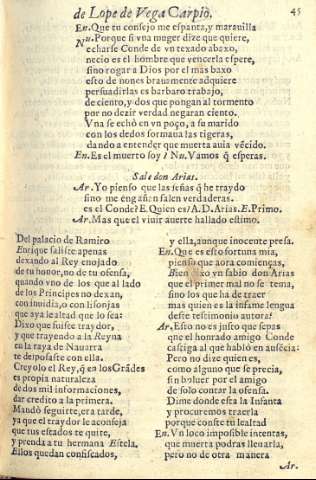 de Lope de Vega Carpio.
45
En. Que tu consejo me espanta, y maravilla
Nu. Porque si vna muger dize que quiere,
echarse Conde de vn texado abaxo,
necio es el hombre que vencerla espere,
sino rogar a Dios por el mas baxo
esto de nones brauamente adquiere
persuadirlas es barbaro trabajo,
de ciento, y dos que pongan al tormento
por no dezir verdad negaran ciento.
Vna se echò en vn poço, a su marido
con los dedos formaua las tigeras,
dando a entender que muerta auia vēcido.
En. Es el muerto soy? Nu. Vamos q̃ esperas.
Sale don Arias.
Ar. Yo pienso que las señas q̃ he traydo
sino me engañan salen verdaderas.
es el Conde? E. Quien es? A. D. Arias. E. Primo.
Ar. Mas que el viuir auerte hallado estimo.
Del palacio de Ramiro
Enrique saliste apenas
dexando al Rey enojado
de tu honor, no de tu ofensa,
quando vno de los que al lado
de los Principes no dexan,
con inuidia, o con lisonjas
que aya lealtad que lo sea:
Dixo que fuiste traydor,
y que trayendo a la Reyna
tu la raya de Nauarra
te desposaste con ella.
Creyolo el Rey, q̃ en los Grādes
es propia naturaleza
de dos mil informaciones,
dar credito a la primera.
Mandò seguirte, era tarde,
ya que el traydor le aconseja
que tus estados te quite,
y prenda a tu hermana Estela.
Ellos quedan confiscados,
y ella, aunque inocente presa.
En. Que es esto fortuna mia,
pienso que aora comienças,
Bien dixo vn sabio don Arias
que el primer mal no se tema,
sino los que ha de traer
mas quien es la infame lengua
deste testimonio autora?
Ar. Esto no es justo que sepas
que el honrado amigo Conde
castiga al que habló en ausēcia:
Pero no dize quien es,
como alguno que se precia,
sin boluer por el amigo
de solo contar la ofensa.
Dime donde esta la Infanta
y procuremos traerla
porque conste tu lealtad
En. Vn loco imposible intentas,
que muerta podras lleuarla,
pero no de otra manera
Ar.